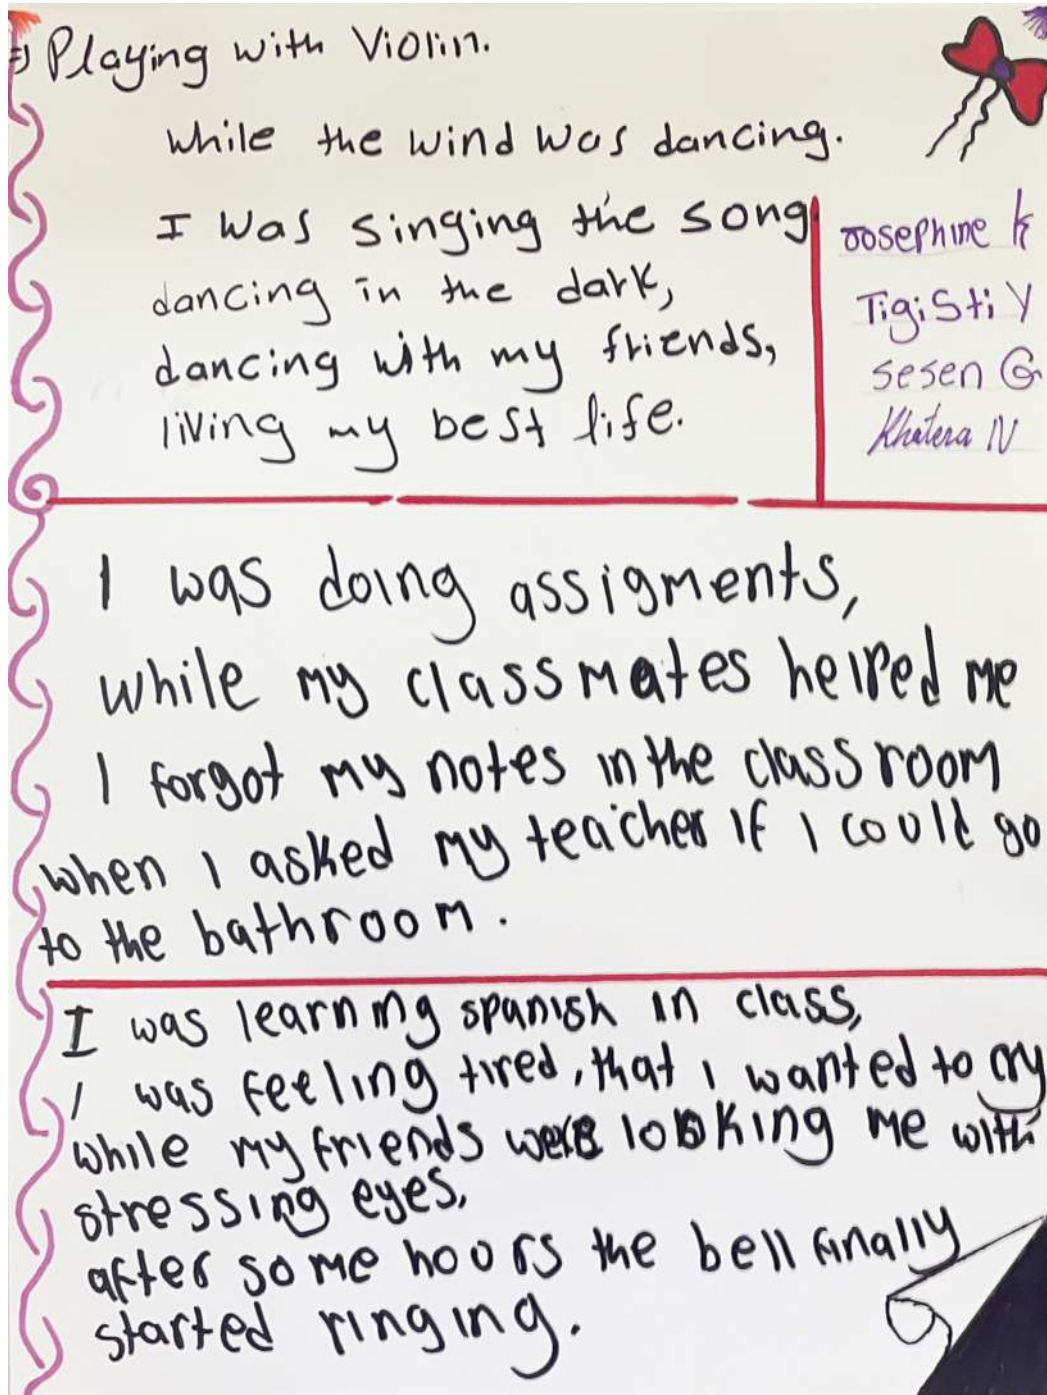 Playing with Violin.
While the wind was dancing.
I was singing the song
dancing in the dark,
dancing with my friends,
living my best life.
Josephine K
Tigisti Y
Sesen G
Khatera N
I was doing assigments,
while my classmates helped me
I forgot my notes in the classroom
when I asked my teacher if I could go
to the bathroom.
I was learning spanish in class,
I was feeling tired, that I wanted to cry
while my friends were looking me with
stressing eyes,
after some hours the bell finally
started ringing.